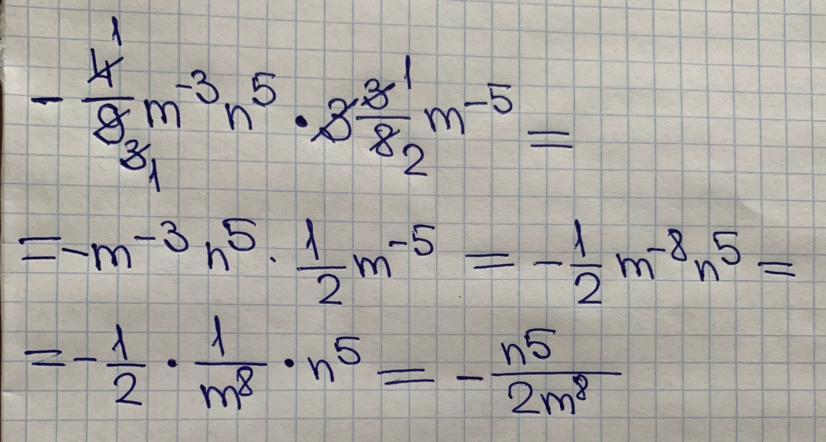 - 4/9 m^-3 n^5 · 3 3/8 m^-5 =
= -m^-3 n^5 · 1/2 m^-5 = - 1/2 m^-8 n^5 =
= - 1/2 · 1/m^8 · n^5 = - n^5/2m^8